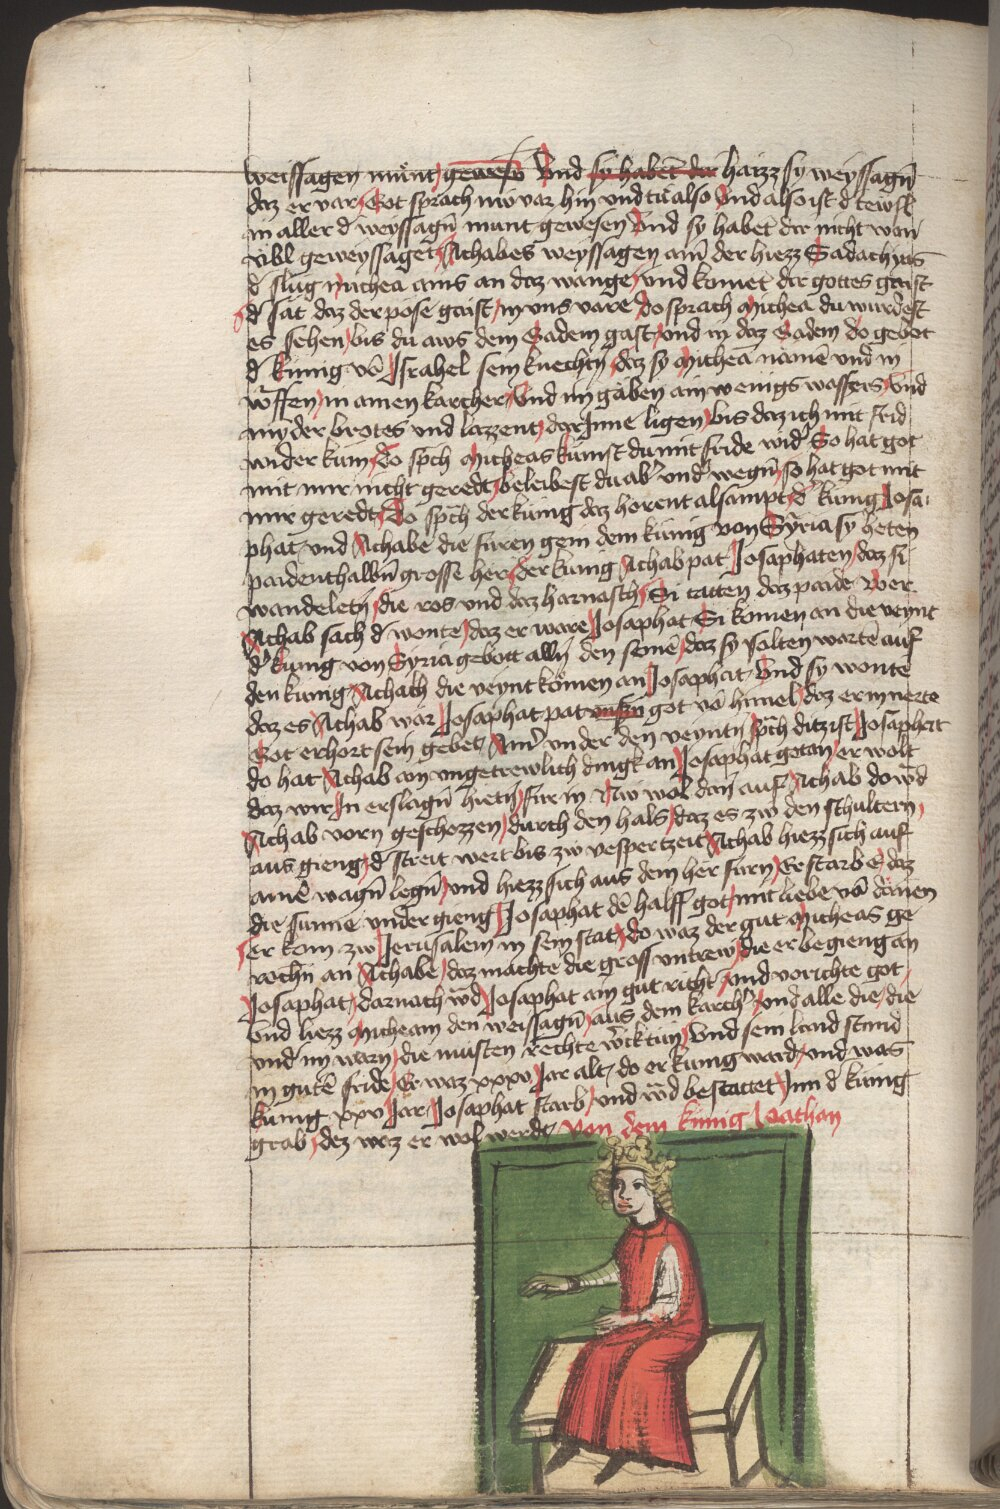 weissagen munt gewesn Und sy habet dir haizz sy weyssagn̄
daz er var Got sprach nw var hin vnd tu also Und also ist d̕ tewfl
in aller d̕ weyssagn̄ munt gewesen Und sy habet dir nicht wan
vbl geweyssaget Achabes weyssagen ain̄ der hiezz Sadachyas
d̕ slug Michea ains an daz wange vnd komet dir gottes gaist
d̕ sait daz der pöse gaist in vns vare do sprach Michea du wurdest
es sehen bis du aws dem Gadem gast vnd in daz Gadem do gebot
d̕ kunig vō Israhel sein knechtn̄ daz sy Micheā nämē vnd in
wꝰffen in ainen karcher Und im gäben ain wenigs wassers Und
myder brotes vnd lazzent dar Inne ligen bis daz ich mit frid
wider kum do sp̄ch Micheas kumst du mit fride widꝰ So hat got
mit mir nicht geredt beleibest du abꝰ vndꝰ wegn̄ so hat got mit
mir geredt Do sp̄ch der kunig daz horent alsampt dꝰ kunig Josa
phat vnd Achabe die füren gein dem kunig von Syria sy heten
paidenthalbn̄ grosse her der kunig Achab pat Josaphaten daz si
wandeletn̄ die ros vnd daz harnasch Si tatten daz paide Wer
Achab sach d̕ wonte daz er ware Josaphat Si komen an die veynt
dꝰ kunig von Syria gebott alln̄ den seinē daz sy solten wartē auf
den kunig Achab die veynt kömen an Josaphat Und sy wonte
daz es Achab wär Josaphat pat got vō himel daz er in nerte
Got erhort sein gebet Ainꝰ vnder den veyntn̄ sp̄ch ditz ist Josaphat
do hat Achab ain vngetrewlich dingk an Josaphat getan er wolt
daz wir In erslagn̄ hietn̄ für in Nw wol dan auf Achab do wꝰd
Achab vorn geschozzen durch den hals daz es zw den schultern
aus gieng d̕ streit wert bis zw vesperzeit Achab hiezz sich auf
ainē wagn̄ legn̄ vnd hiezz sich aus dem her furn Er starb e daz
die sunne vnder gieng Josaphat dē halff got mit liebe vō dannen
er kom zw Jerusalem in sein stat do waz der gut Micheas ge
rochn̄ an Achabe daz machte die gross vntrew die er begieng an
Josaphat darnach wꝰd Josaphat ain gut richtꝰ vnd vorichte got
Und liezz Micheam den weissagn̄ aus dem karchꝰ vnd alle die die
vnd im warn die musten rechte wꝰcktun Und sein land stund
in gutē fride Er waz xxxv Jar alt do er kunig ward vnd was
kunig xxv Jar Josaphat starb vnd wꝰd bestattet Inn d̕ kunig
grab dez waz er wol werdt Von dem kunig Joathan